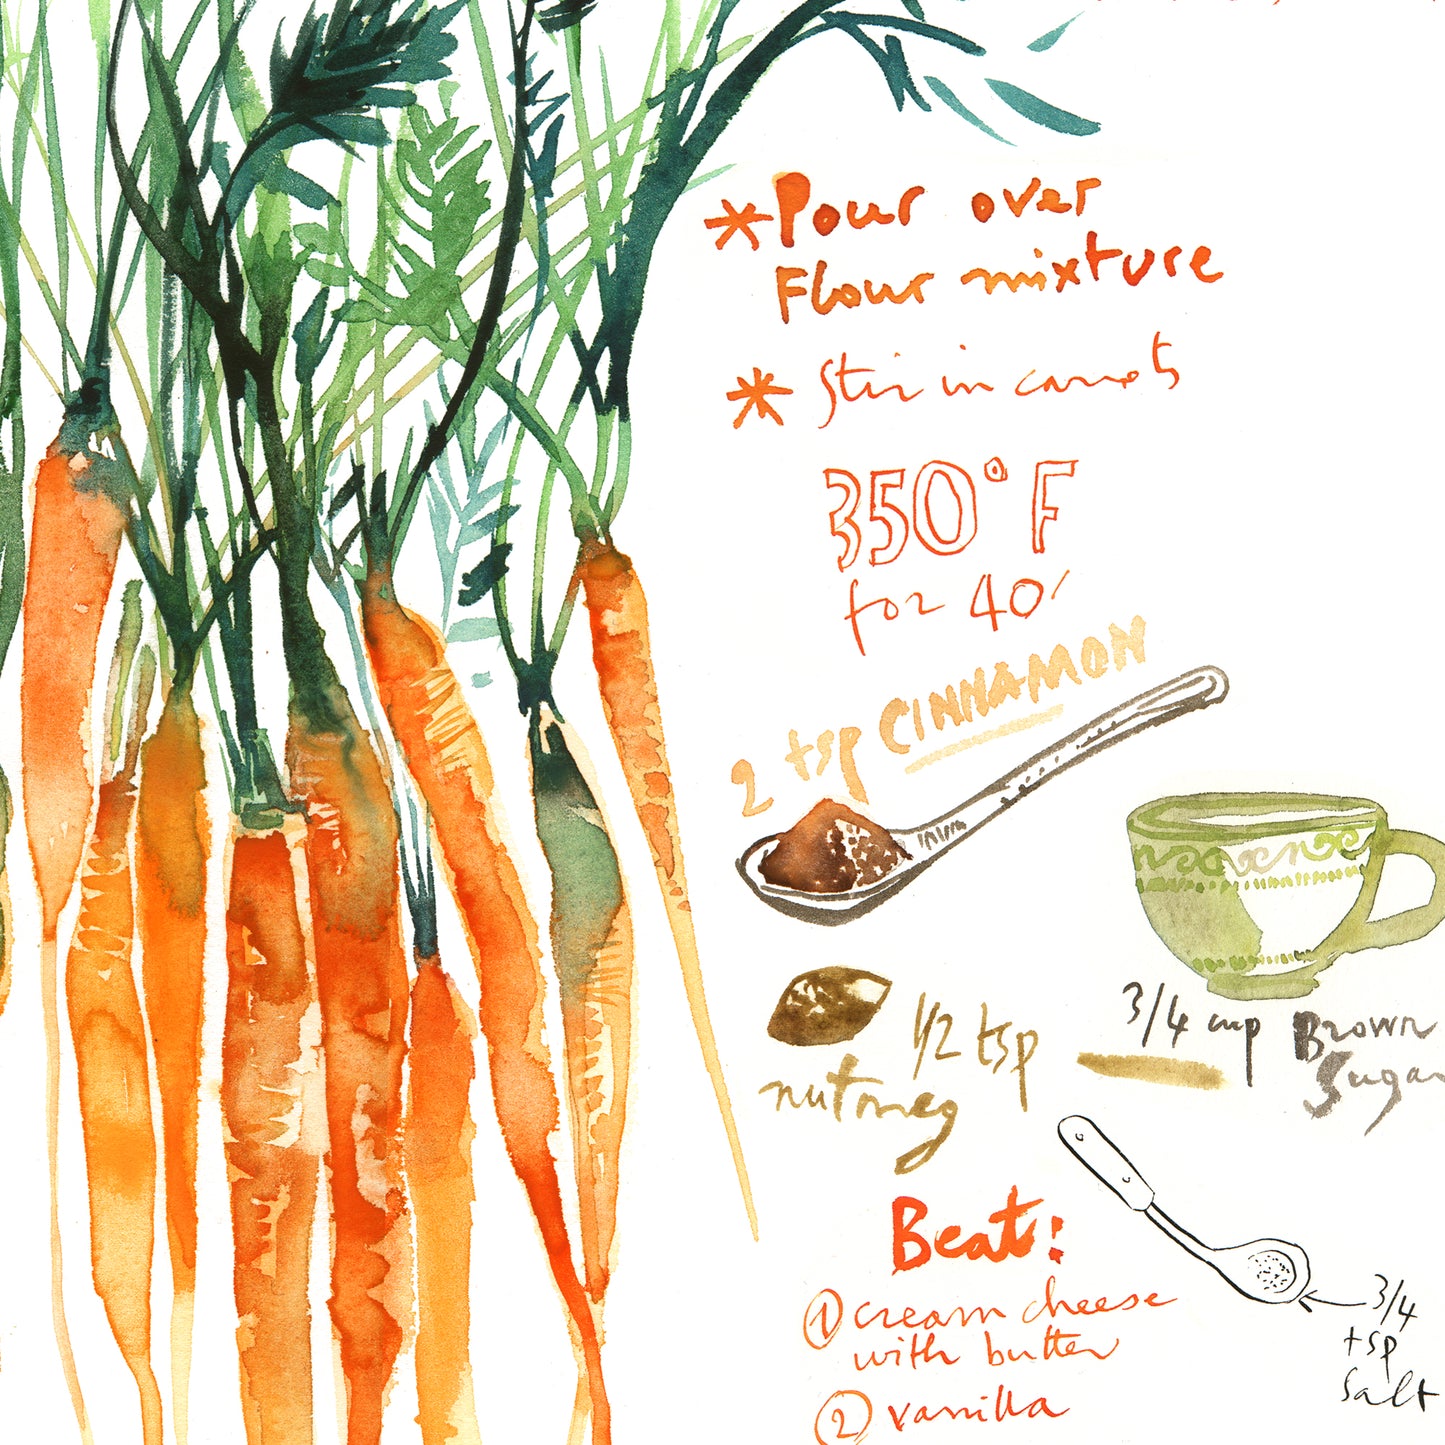 * Pour over
Flour mixture
* Stir in carrots
350°F
for 40'
2 tsp CINNAMON
1/2 tsp
nutmeg
3/4 cup Brown
Sugar
Beat:
① cream cheese
with butter
② vanilla
3/4
tsp
salt